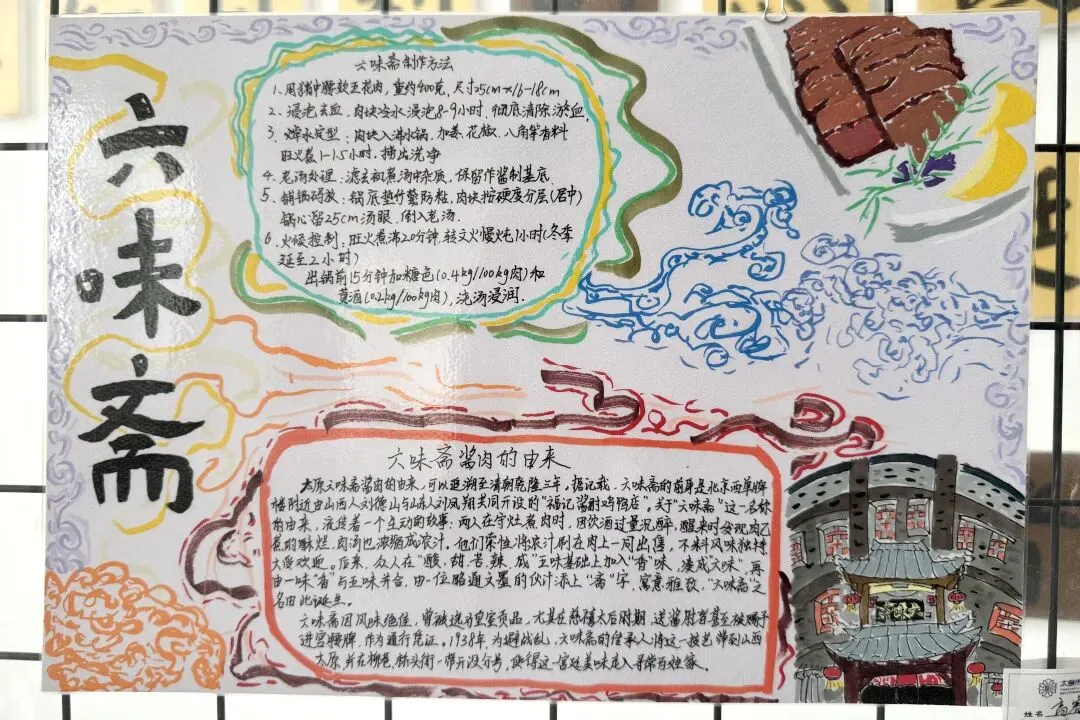 六味斋
六味斋制作方法
1、用猪中腰敖五花肉，重约900克，尺寸25cm×16-18cm
2、浸泡去血，肉块冷水浸泡8-9小时，彻底清除淤血
3、焯水定型：肉块入沸水锅，加姜、花椒、八角等香料
旺火煮1-1.5小时，捞出洗净
4、老汤处理：滤去初煮汤中杂质，保留作酱制基底
5、锅锅码放：锅底垫竹蓖防粘，肉块按硬度分层(居中)
锅心留25cm汤眼，倒入老汤.
6、火候控制：旺火煮沸20分钟，转文火慢炖1小时(冬季
延至2小时)
出锅前15分钟加糖色(0.4kg/100kg肉)和
黄酒(0.2kg/100kg肉)，浇汤浸润.
六味斋酱肉的由来
太原六味斋酱肉的由来，可以追溯至清朝乾隆三年，据记载，六味斋的前身是北京西单牌
楼附近由山西人刘德山与山东人刘凤翔共同开设的"福记酱肘鸡鸭店"。关于"六味斋"这一名称
的由来，流传着一个生动的故事：两人在守灶煮肉时，因饮酒过量沉醉，醒来时发现肉已
煮的酥烂，肉汤也浓缩成浓汁。他们索性将浓汁刷在肉上一同出售，不料风味独特
大受欢迎。后来，友人在"酸、甜、苦、辣、咸"五味基础上加入"香"味，凑成六味"，再
由一味"香"与五味并合，由一位略通文墨的伙计添上"斋"字，寓意雅致，"六味斋"之
名由此诞生。
六味斋因风味绝佳，曾被选为皇室贡品，尤其在慈禧太后时期，送酱肘者甚至被赐予
进宫腰牌，作为通行凭证。1938年，为避战乱，六味斋的传承人将这一技艺带到山西
太原，并在柳巷、桥头街一带开设分号，使得这一宫廷美味走入寻常百姓家。
姓名